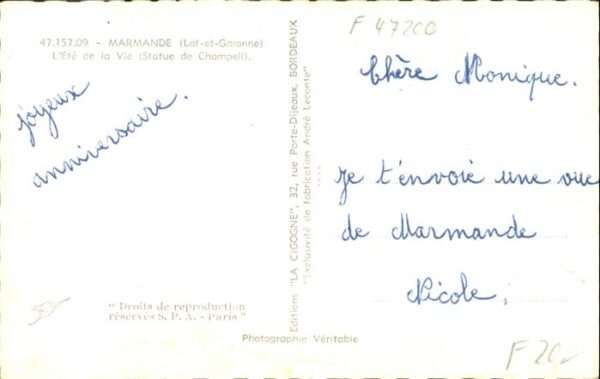 47.157.09 - MARMANDE (Lot-et-Garonne)
L'Été de la Vie (Statue de Champeil).
joyeux
anniversaire.
"Droits de reproduction
réservés S. P. A. - Paris"
Editions "LA CIGOGNE", 32, rue Porte-Dijeaux, BORDEAUX
"Exclusivité de fabrication André Leconte"
Photographie Véritable
F 47200
Chère Monique.
Je t'envoie une vue
de Marmande
Nicole,